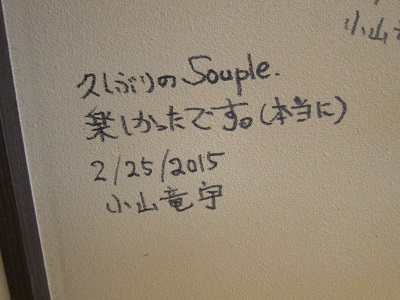 小山竜
久しぶりの Souple.
楽しかったです。(本当に)
2/25/2015
小山竜宇